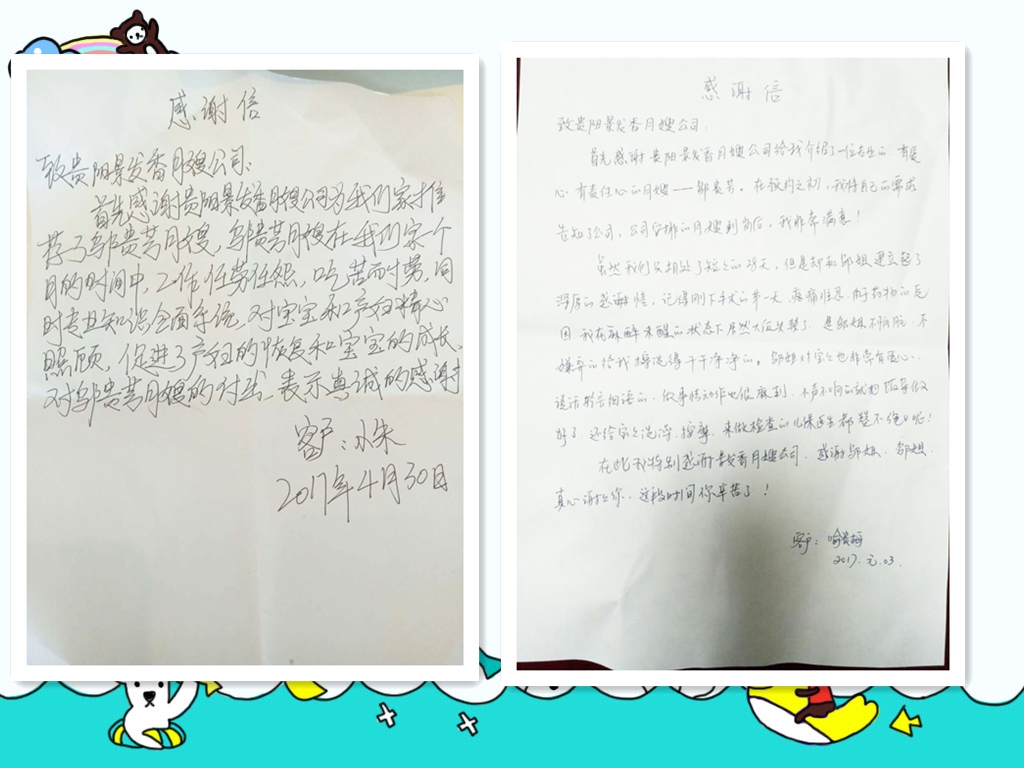 感谢信
致贵阳景发香月嫂公司:
首先感谢贵阳景发香月嫂公司为我们家推
荐了邬贵芳月嫂,邬贵芳月嫂在我们家一个
月的时间中,工作任劳任怨,吃苦耐劳,同
时专业知识全面系统,对宝宝和产妇精心
照顾,促进了产妇的恢复和宝宝的成长,
对邬贵芳月嫂的付出,表示真诚的感谢!
客户:小朱
2017年4月30日
感谢信
致贵阳景发香月嫂公司:
首先感谢贵阳景发香月嫂公司给我介绍了一位专业的、有爱
心有责任心的月嫂——邬贵芳。在签约之初,我将自己的要求
告知了公司,公司安排的月嫂到岗后,我非常满意!
虽然我们只相处了短短的28天,但是却和邬姐建立起了
深厚的感谢情,记得刚下手术的第一天,疼痛难忍,由于药物的原
因,我在麻醉未醒的状态下居然大便失禁了,是邬姐不怕脏、不
嫌弃的给我擦洗得干干净净的。邬姐对宝宝也非常有爱心,
说话轻言细语的,做事情动作也很麻利,不声不响的就把饭等做
好了,还给宝宝洗澡、按摩,来做检查的儿保医生都赞不绝口呢!
在此我特别感谢景发香月嫂公司,感谢邬姐,邬姐,
真心谢谢你,这段时间你辛苦了!
客户:喻贵梅
2017.元.03.